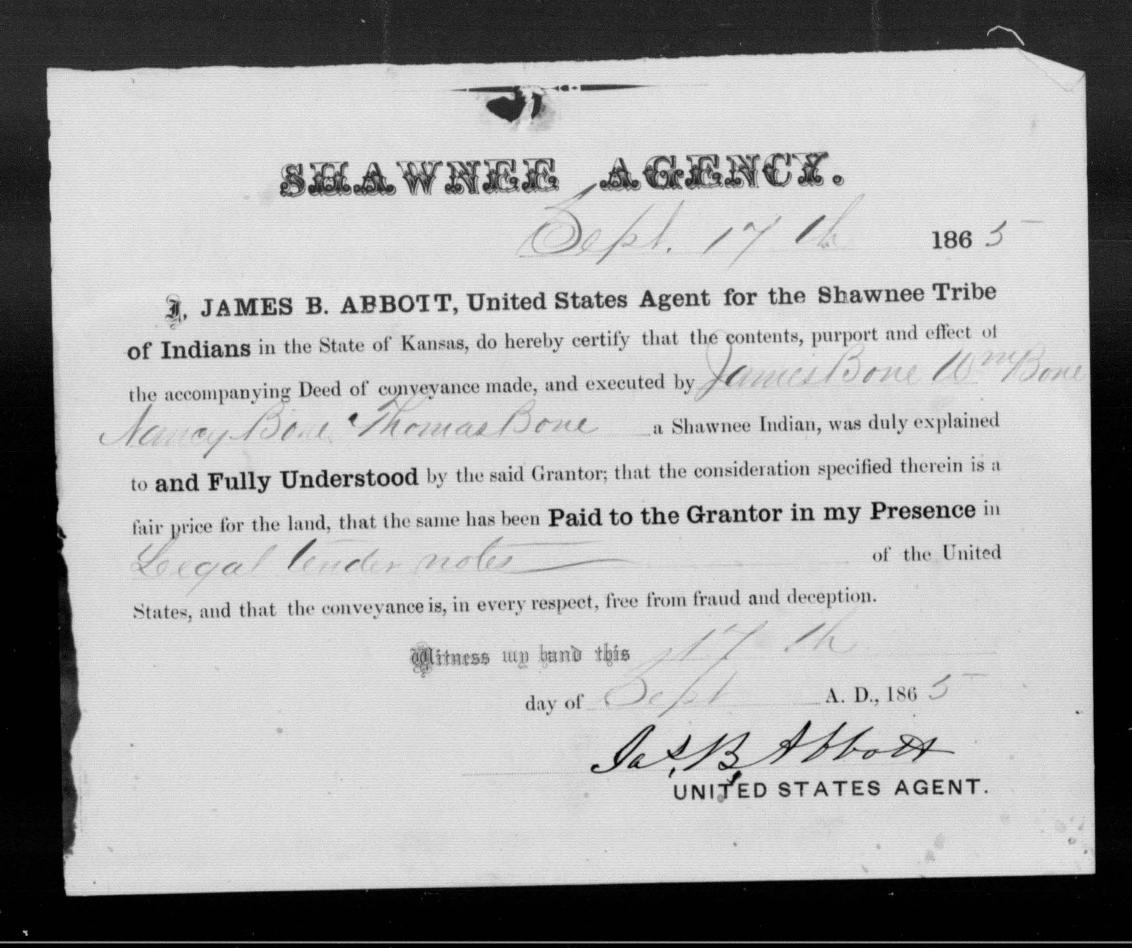 SHAWNEE AGENCY.
Sept. 17th 1865
I, JAMES B. ABBOTT, United States Agent for the Shawnee Tribe
of Indians in the State of Kansas, do hereby certify that the contents, purport and effect of
the accompanying Deed of conveyance made, and executed by James Bone Wm Bone
Nancy Bone Thomas Bone a Shawnee Indian, was duly explained
to and Fully Understood by the said Grantor; that the consideration specified therein is a
fair price for the land, that the same has been Paid to the Grantor in my Presence in
Legal tender notes of the United
States, and that the conveyance is, in every respect, free from fraud and deception.
Witness my hand this 17th
day of Sept A. D., 1865
Jas. B. Abbott
UNITED STATES AGENT.